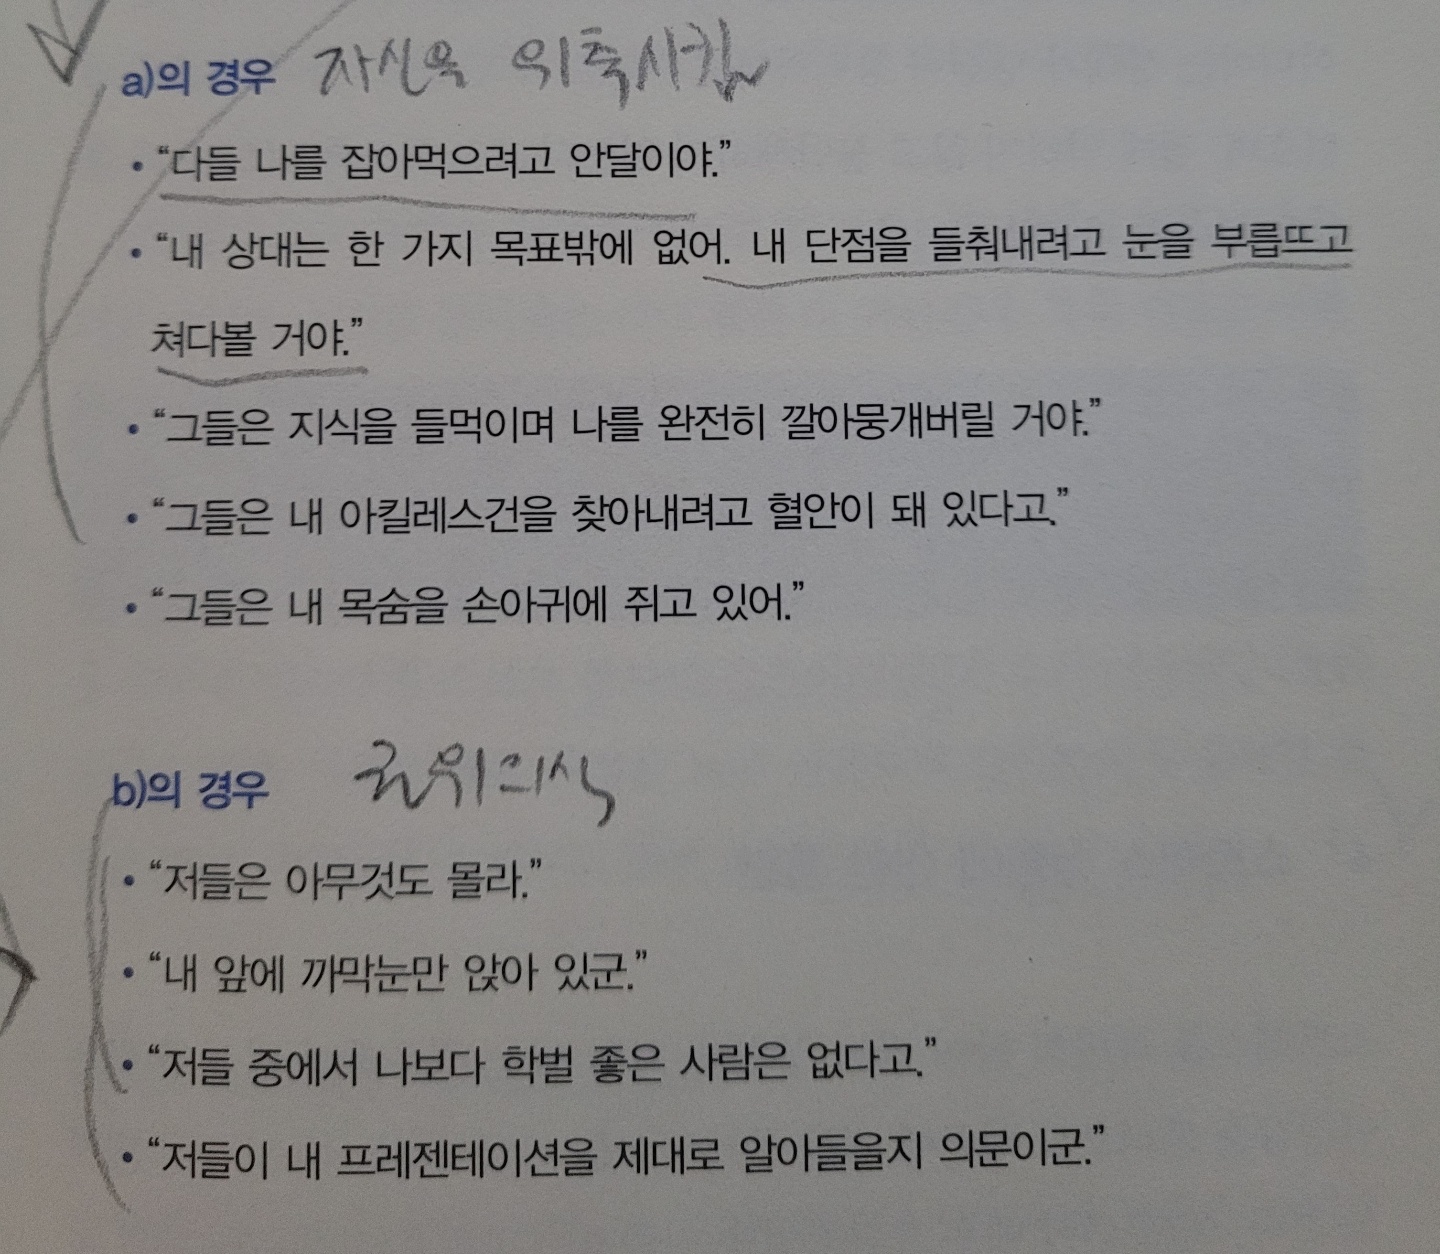 a)의 경우 자신을 위축시킴
• “다들 나를 잡아먹으려고 안달이야.”
• “내 상대는 한 가지 목표밖에 없어. 내 단점을 들춰내려고 눈을 부릅뜨고
쳐다볼 거야.”
• “그들은 지식을 들먹이며 나를 완전히 깔아뭉개버릴 거야.”
• “그들은 내 아킬레스건을 찾아내려고 혈안이 돼 있다고.”
• “그들은 내 목숨을 손아귀에 쥐고 있어.”
b)의 경우 권위의식
• “저들은 아무것도 몰라.”
• “내 앞에 까막눈만 앉아 있군.”
• “저들 중에서 나보다 학벌 좋은 사람은 없다고.”
• “저들이 내 프레젠테이션을 제대로 알아들을지 의문이군.”